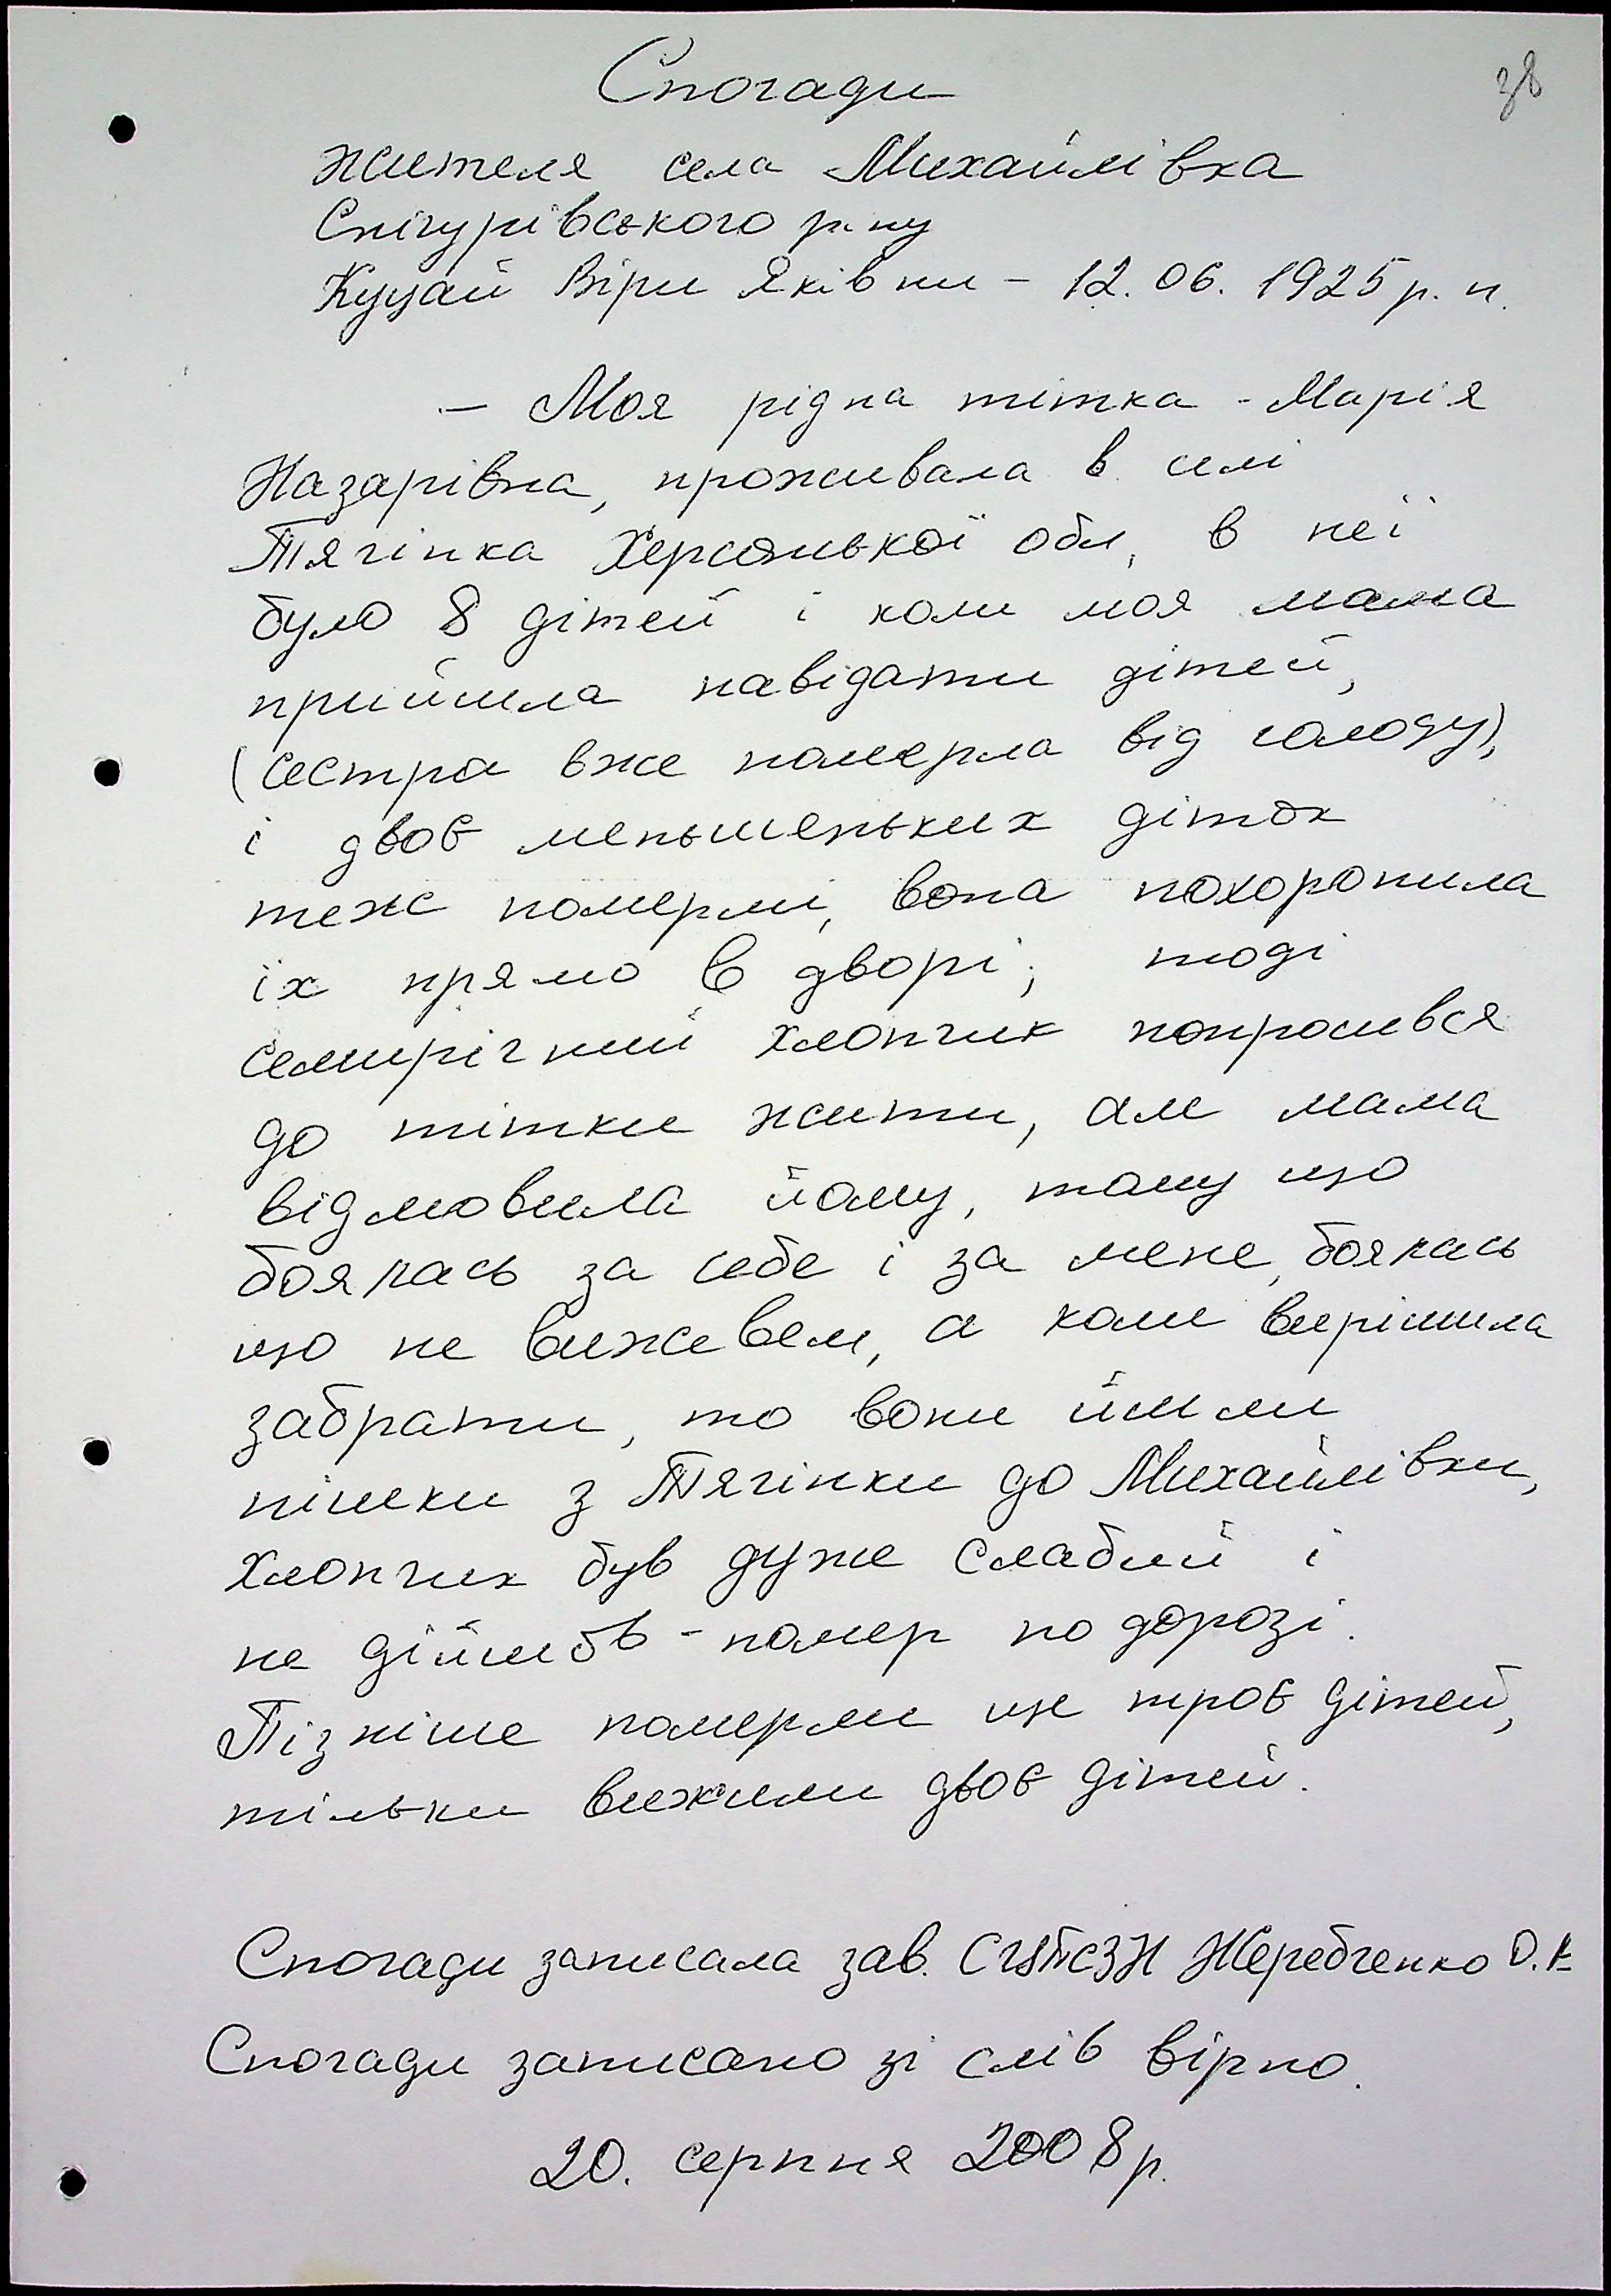 38
Спогади
жителя села Михайлівка
Снігурівського р-ну
Куцай Віри Яківни - 12.06.1925 р. н.
- Моя рідна тітка - Марія
Назарівна, проживала в селі
Тягінка Херсонької обл, в неї
було 8 дітей і коли моя мама
прийшла навідати дітей,
(сестра вже померла від голоду),
і двоє меньшеньких діток
теж померли, вона похоронила
їх прямо в дворі; тоді
семирічний хлопчик попросився
до тітки жити, але мама
відмовила йому, тому що
боялась за себе і за мене, боялась
що не виживем, а коли вирішила
забрати, то вони йшли
пішки з Тягінки до Михайлівки,
хлопчик був дуже слабий і
не дійшов - помер по дорозі.
Пізніше померли ще троє дітей,
тільки вижили двоє дітей.
Спогади записала зав. Жеребченко О.
Спогади записано зі слів вірно.
20. серпня 2008 р.